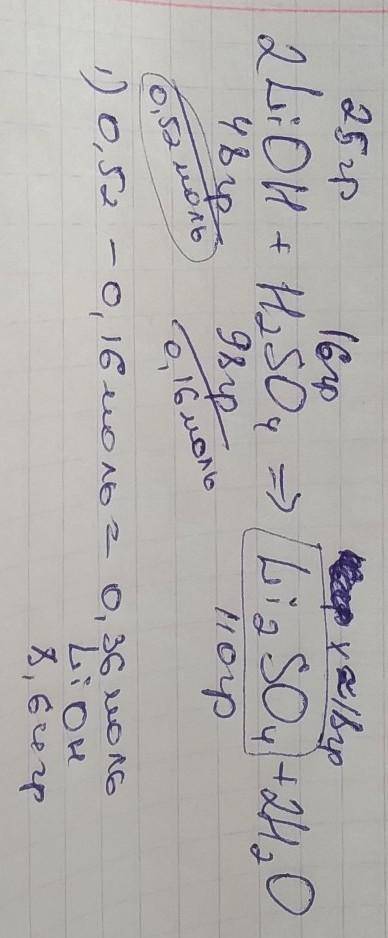 25гр 16гр x≈18гр
2LiOH + H₂SO₄ ⇒ Li₂SO₄ + 2H₂O
48гр 98гр 110гр
0,52 моль 0,16 моль
1) 0,52 - 0,16 моль = 0,36 моль
LiOH
8,64гр